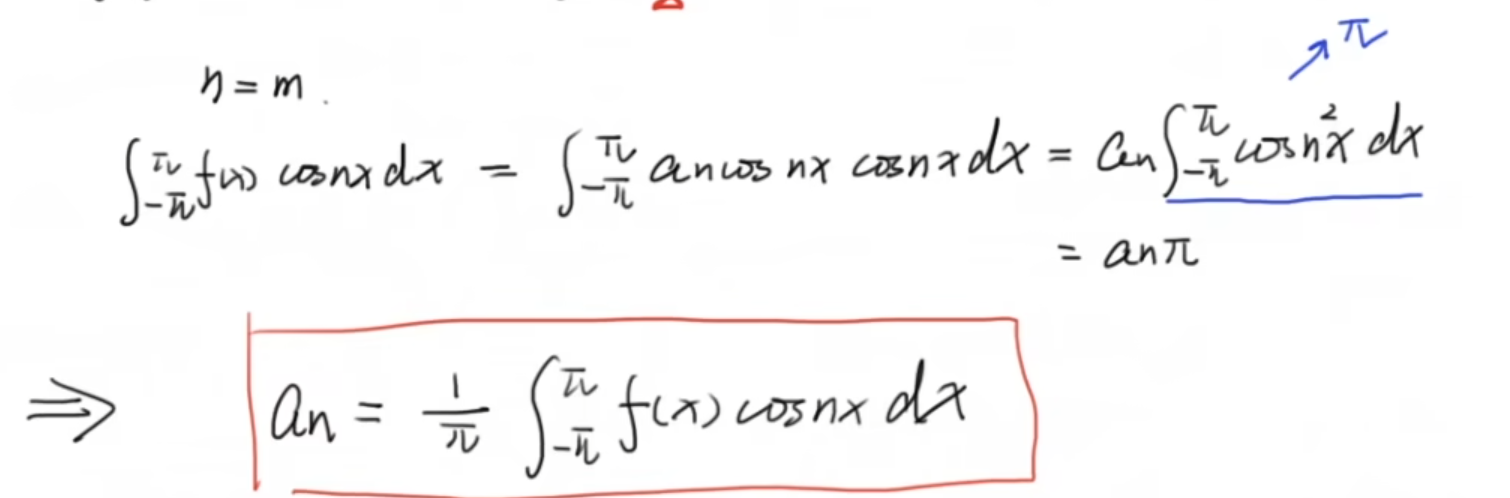 π
n = m .
∫_{-π}^{π} f(x) cosnx dx = ∫_{-π}^{π} an cos nx cosnx dx = an ∫_{-π}^{π} cosn²x dx
= anπ
⇒ an = 1/π ∫_{-π}^{π} f(x) cosnx dx